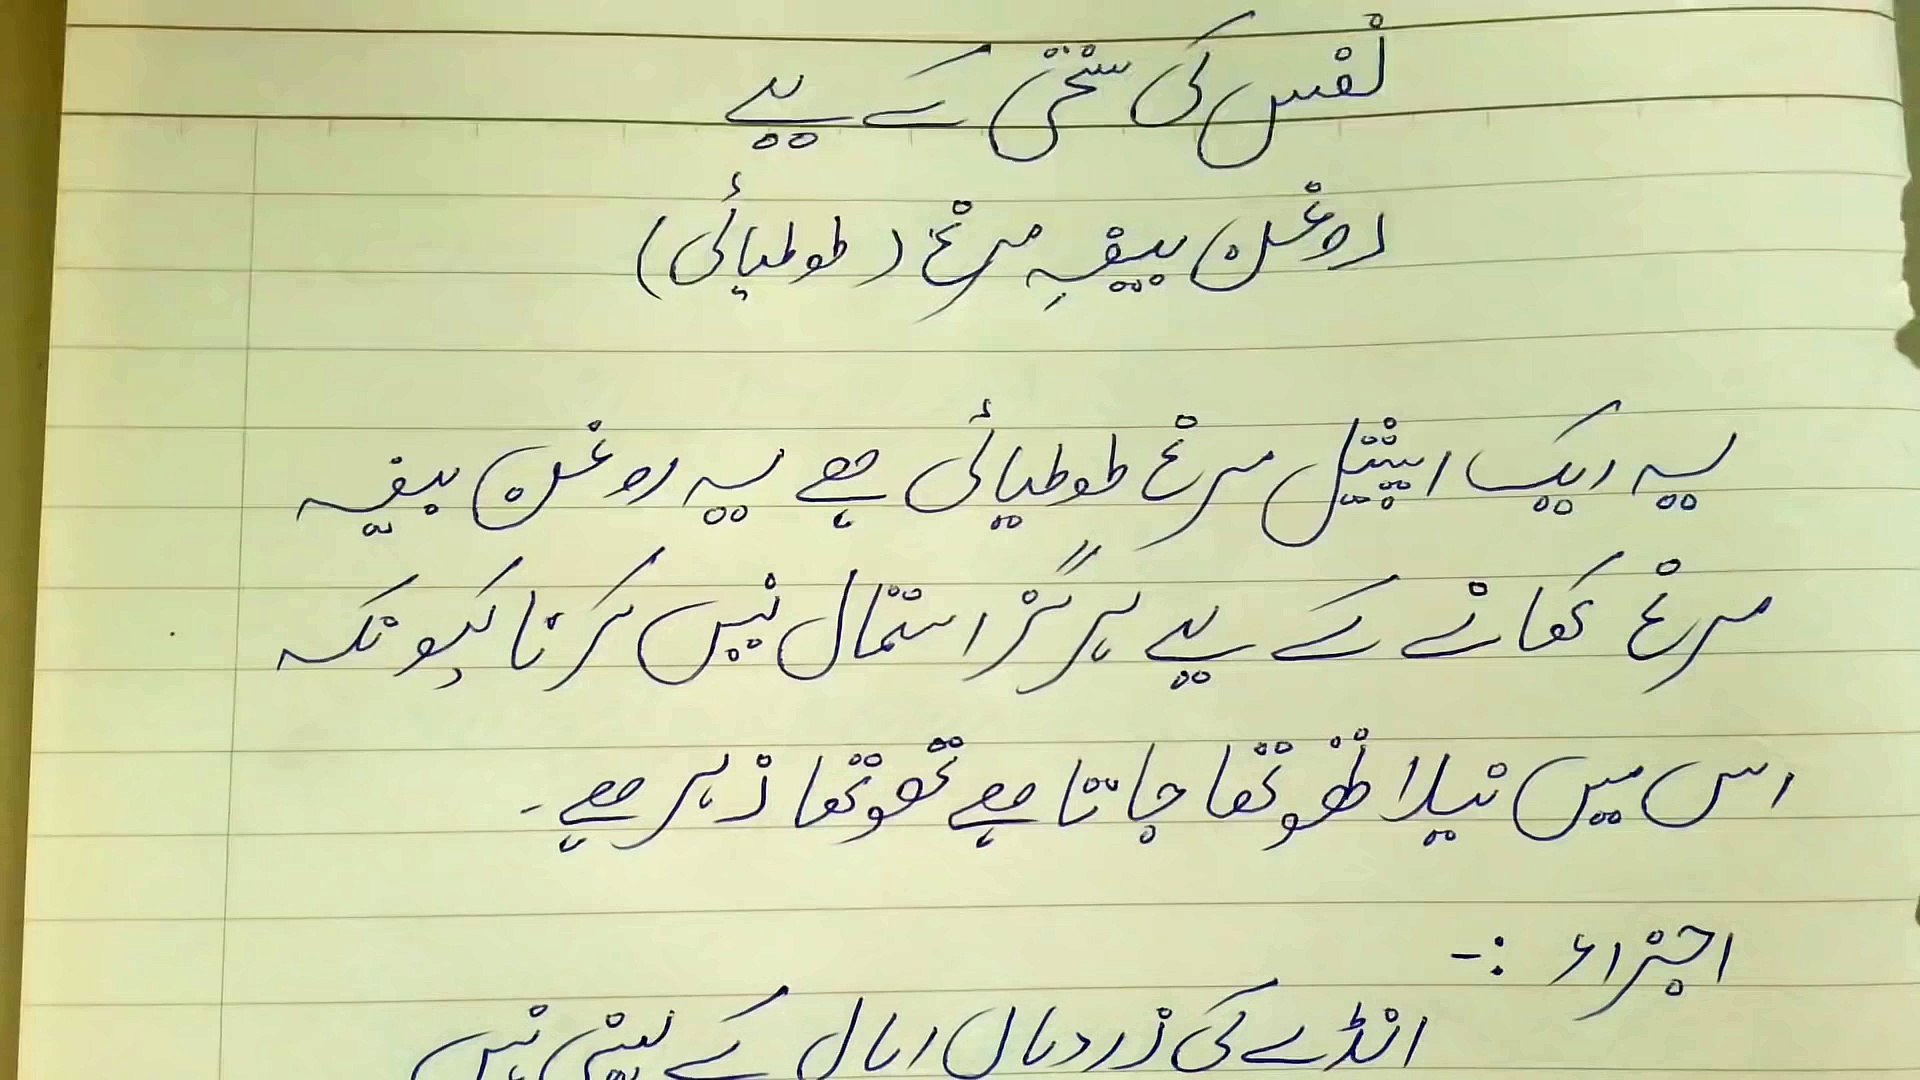 نفس کی سختی کے لیے
روغن بیضہِ مرغ (طوطیائی)
یہ ایک اسپیشل مرغ طوطیائی ہے یہ روغن بیضہ
مرغ کھانے کے لیے ہرگز استمال نہیں کرنا کیونکہ
اس میں نیلا تھوتھا جاتا ہے تھوتھا ذہر ہے۔
اجزاء :-
انڈے کی زردیاں ابال کے لینی ہیں